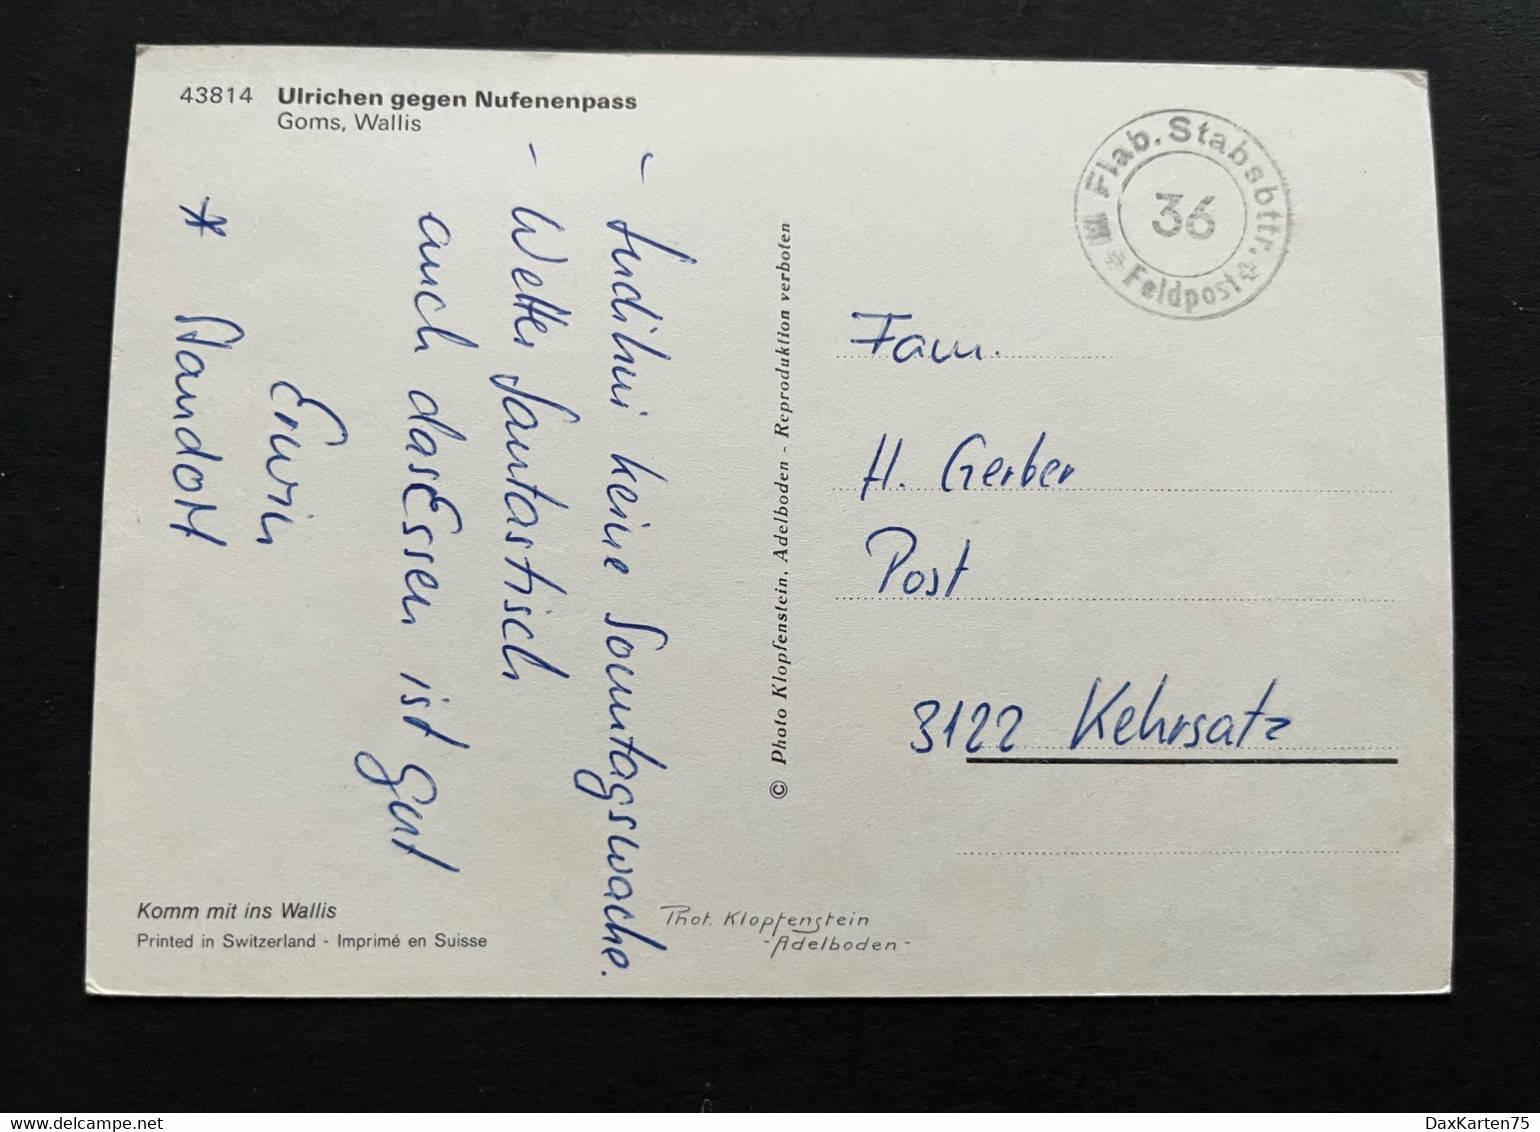 43814 Ulrichen gegen Nufenenpass
Goms, Wallis
- keine Sonntagswache.
- Wetter fantastisch
auch das Essen ist gut
Erwin
* Standort
Komm mit ins Wallis
Printed in Switzerland - Imprimé en Suisse
© Photo Klopfenstein, Adelboden - Reproduktion verboten
Phot. Klopfenstein
- Adelboden -
Flab. Stabsbttr.
36
Feldpost
Fam.
H. Gerber
Post
3122 Kehrsatz
DaxKarten75